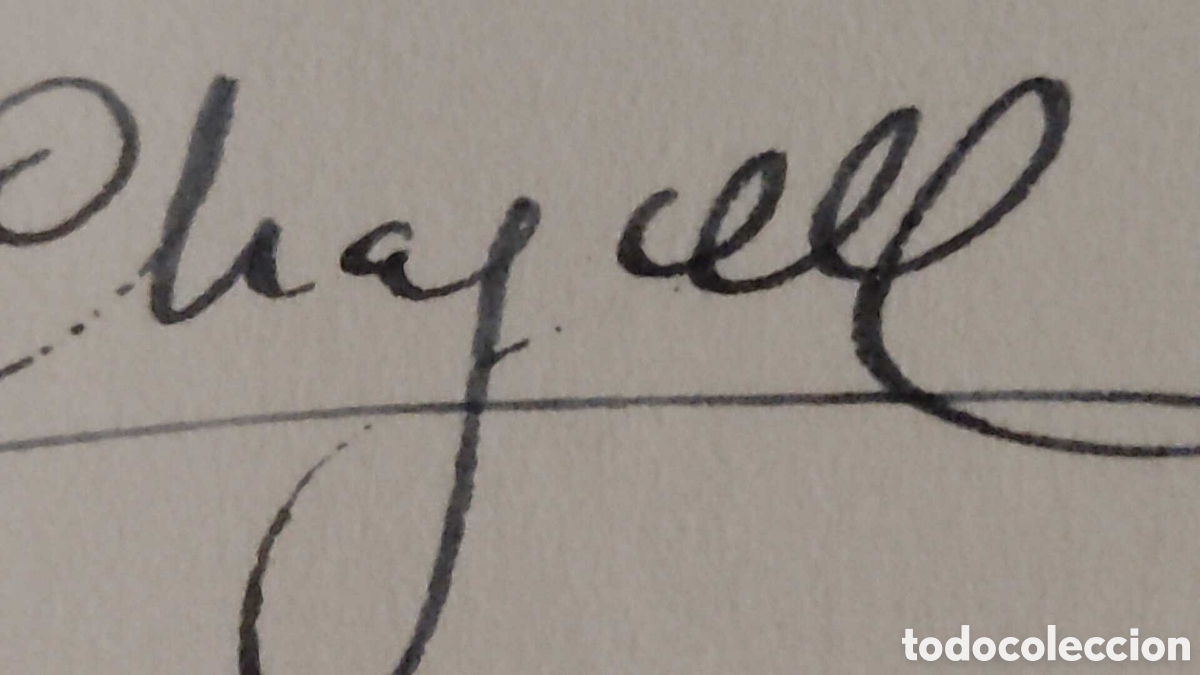 Chagall
todocoleccion